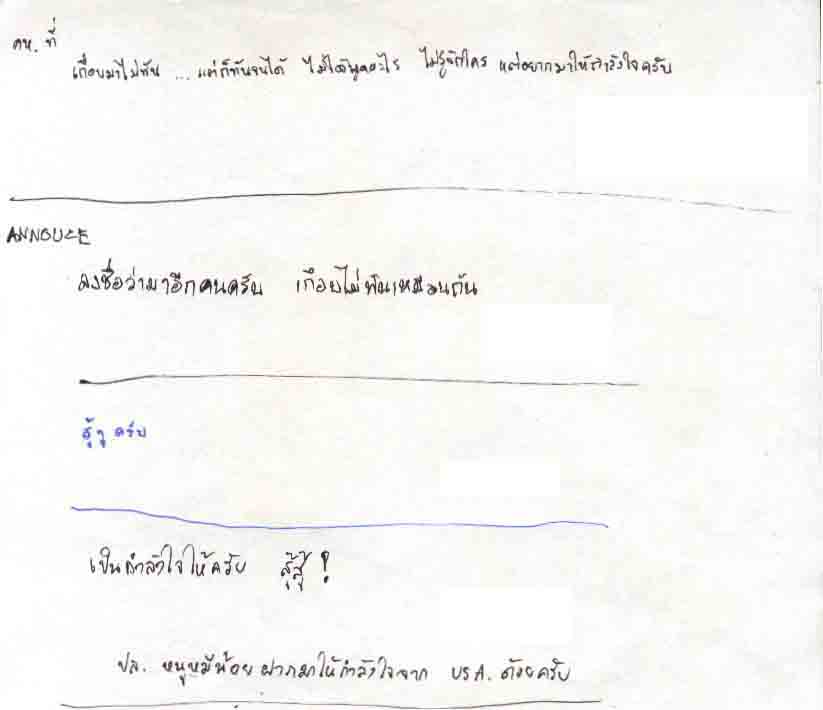 คห. ที่
เกือบมาไม่ทัน ... แต่ก็ทันจนได้ ไม่ได้พูดอะไร ไม่รู้จักใคร แต่อยากมาให้กำลังใจครับ
ANNOUCE
ลงชื่อว่ามาอีกคนครับ เกือบไม่ทันเหมือนกัน
สู้ๆ ครับ
เป็นกำลังใจให้ครับ สู้สู้ !
ปล. หนูหมีน้อย ฝากมาให้กำลังใจจาก USA. ด้วยครับ